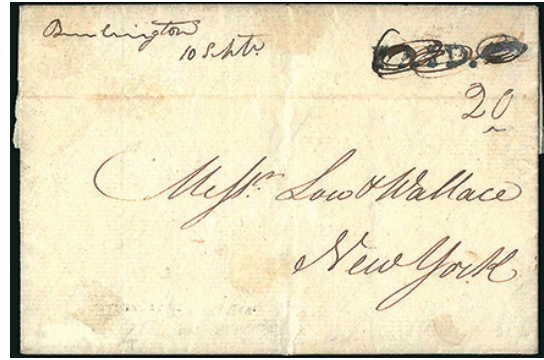 Burlington
10 Septr.
PAID.
20
Messrs. Low & Wallace
New York